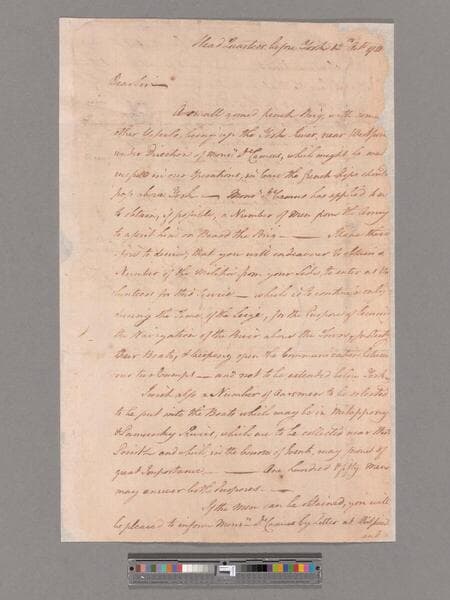 Head Quarters before York 12th Octo 1781
Dear Sir —
A small armed french Brig, with some
other Vessels, being up the York River, near West point
under Direction of Monsr De Camus, which might be em
in our Operations, in Case the french Ships should
pass above York — Monsr De Camus has applied to me
to obtain, if possible, a Number of Men from the Army
to assist him on Board the Brig — I have there
fore to desire, that you will endeavor to obtain a
Number of the Militia from your Side, to enter as Vo
lunteers for this Service — which is to continue only
during the Time of the Seige, for the Purpose of securing
the Navigation of the River above the Town, protect
their Boats, & keeping open the Communication between
our two Camps — and not to be extended below York
I wish also a Number of Oarsmen to be collected
to be put into the Boats which may be in Mattapony
& Pamunky Rivers, which are to be collected near West
Point and which in the course of Events, may prove of
great Importance — One hundred & fifty Men
may answer both Purposes —
If the Men can be obtained, you will
be pleased to inform Monsr De Camus by Letter at West point
and